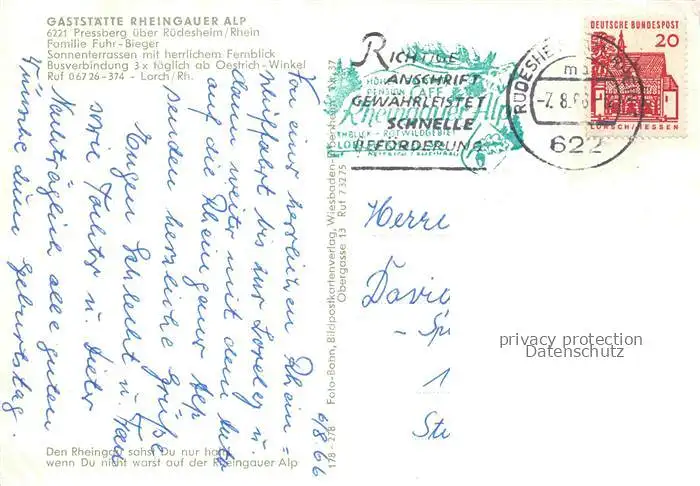 GASTSTÄTTE RHEINGAUER ALP
6221 Pressberg über Rüdesheim/Rhein
Familie Fuhr-Bieger
Sonnenterrassen mit herrlichem Fernblick
Busverbindung 3 x täglich ab Oestrich-Winkel
Ruf 06726-374 - Lorch/Rh.
6/8.66
Von einer herrlichen Rhein=
schiffahrt bis zur Loreley u.
dann weiter mit dem Auto
auf die Rheingauer Alp
senden herzliche Grüße
Eugen u. Frau
sowie Tochter u. Dieter
Nachträglich alle guten
Wünsche zum Geburtstag.
Den Rheingau sahst Du nur halb
wenn Du nicht warst auf der Rheingauer Alp
178 - 278
Foto-Bahn, Bildpostkartenverlag, Wiesbaden-
Obergasse 13 Ruf 73275
RICHTIGE
ANSCHRIFT
GEWÄHRLEISTET
SCHNELLE
BEFÖRDERUNG
PENSION CAFÉ
Rheingauer Alp
ROTWILDGEBIET
RÜDESHEIM
-7.8.66
622
DEUTSCHE BUNDESPOST
20
LORSCH/HESSEN
Herrn
David
- Sp
1
Stu
privacy protection
Datenschutz